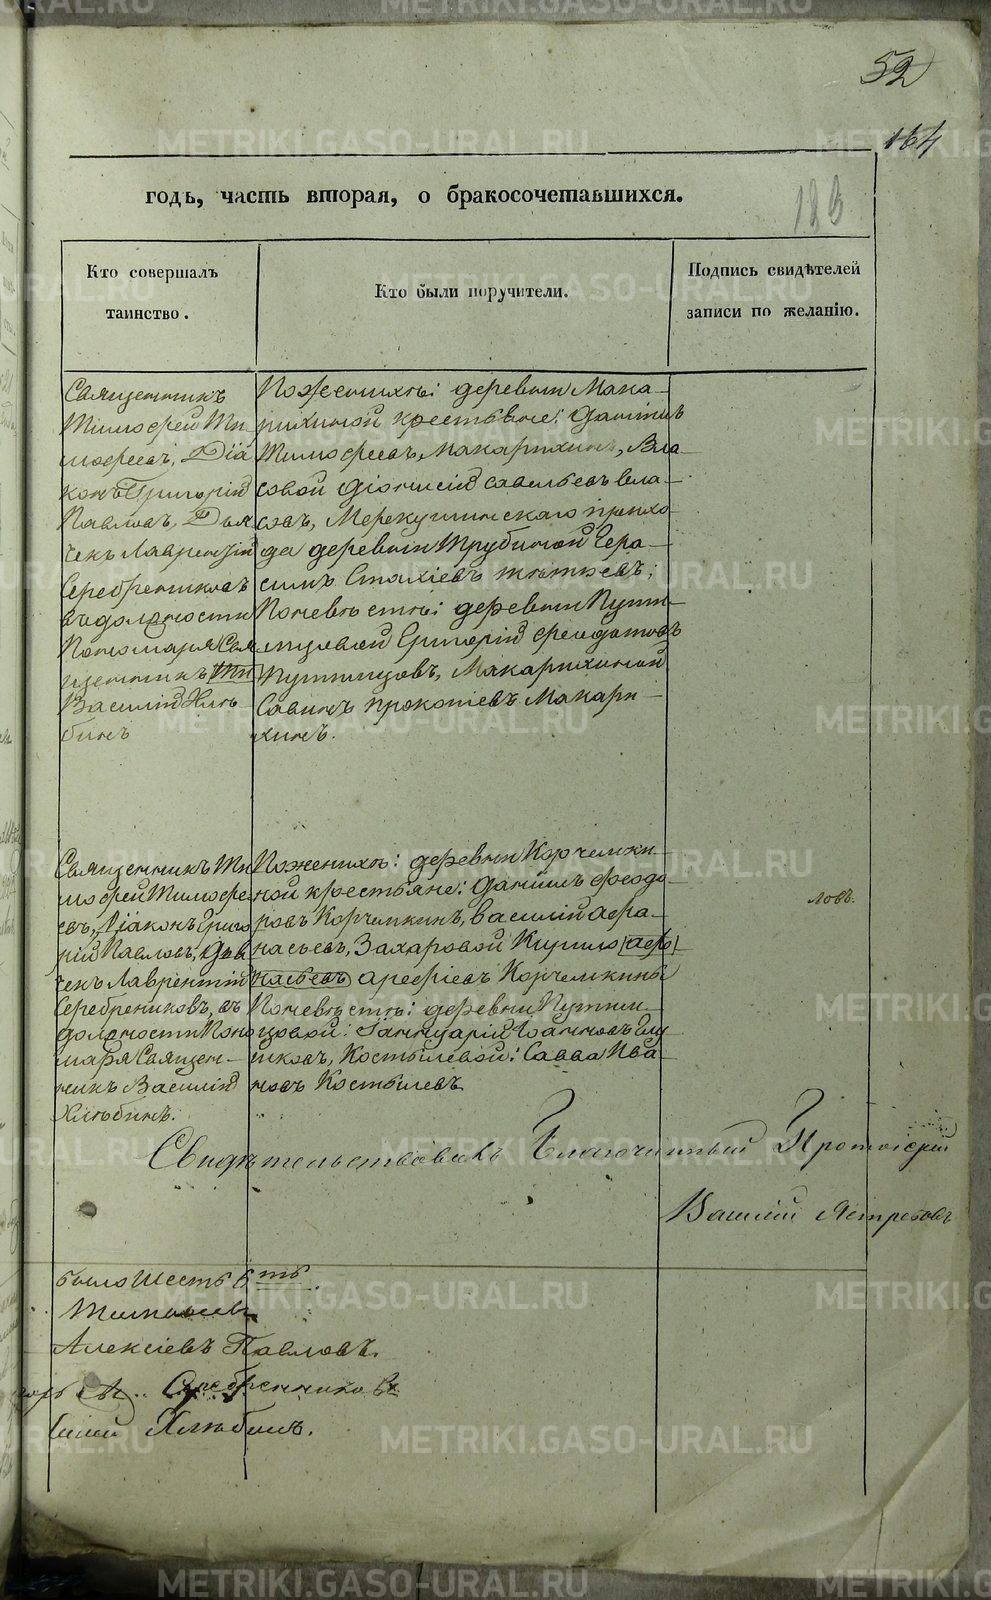 52
164
183
годъ, часть вторая, о бракосочетавшихся.
Кто совершалъ
таинство.
Кто были поручители.
Подпись свидѣтелей
записи по желанію.
Священникъ
Тимофей Ти
мофеевъ, Діа
конъ Григорій
Павловъ, Дья
чекъ Лаврентій
Серебренниковъ
въ должности
Пономаря Свя
щенникъ Ти
Василій Хлѣ
бинъ
По женихѣ: деревни Мака-
рихиной крестьяне: Даніилъ
Тимофеевъ Макарихинъ, Вла-
совой Діонисій Савельевъ Вла-
совъ, Меркушинскаго прихо-
да деревни Трубиной Гера-
симъ Стахіевъ
По невѣстѣ: деревни Путим-
цовой Григорій Феодотовъ
Путимцовъ, Макарихиной
Савинъ Прокопіевъ Макари-
хинъ.
Священникъ Ти
мофей Тимофе
евъ, Діаконъ Григо
рій Павловъ, Дья
чекъ Лаврентій
Серебренниковъ, въ
должности Поно
маря Священ-
никъ Василій
Хлѣбинъ.
По женихѣ: деревни Корчемки-
ной крестьяне: Даніилъ Феодо-
ровъ Корчемкинъ, Василій Афа-
насьевъ, Захаровой Кирило Афа
насьевъ Арефіевъ Корчемкины
По невѣстѣ: деревни Путим-
цовой: Іаннуарій Іоанновъ Глу
шковъ, Костылевой: Савва Ива-
новъ Костылевъ
ловъ.
Свидѣтельствовалъ Благочинный Протоіерей
Василій Ястребовъ
было шесть 6ть
Тимофеевъ
Алексіевъ Павловъ.
Серебренниковъ
силій Хлѣбинъ.
METRIKI.GASO-URAL.RU